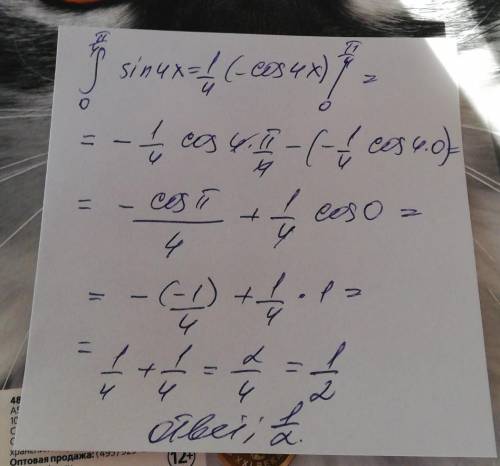 ∫₀^{π/4} sin4x = 1/4 (-cos4x) |₀^{π/4} =
= - 1/4 cos 4·π/4 - (-1/4 cos 4·0) =
= - cosπ/4 + 1/4 cos0 =
= - (-1)/4 + 1/4 · 1 =
=
1/4 + 1/4 = 2/4 = 1/2
ответ: 1/2.
48
Оптовая продажа: (495) 925
12+